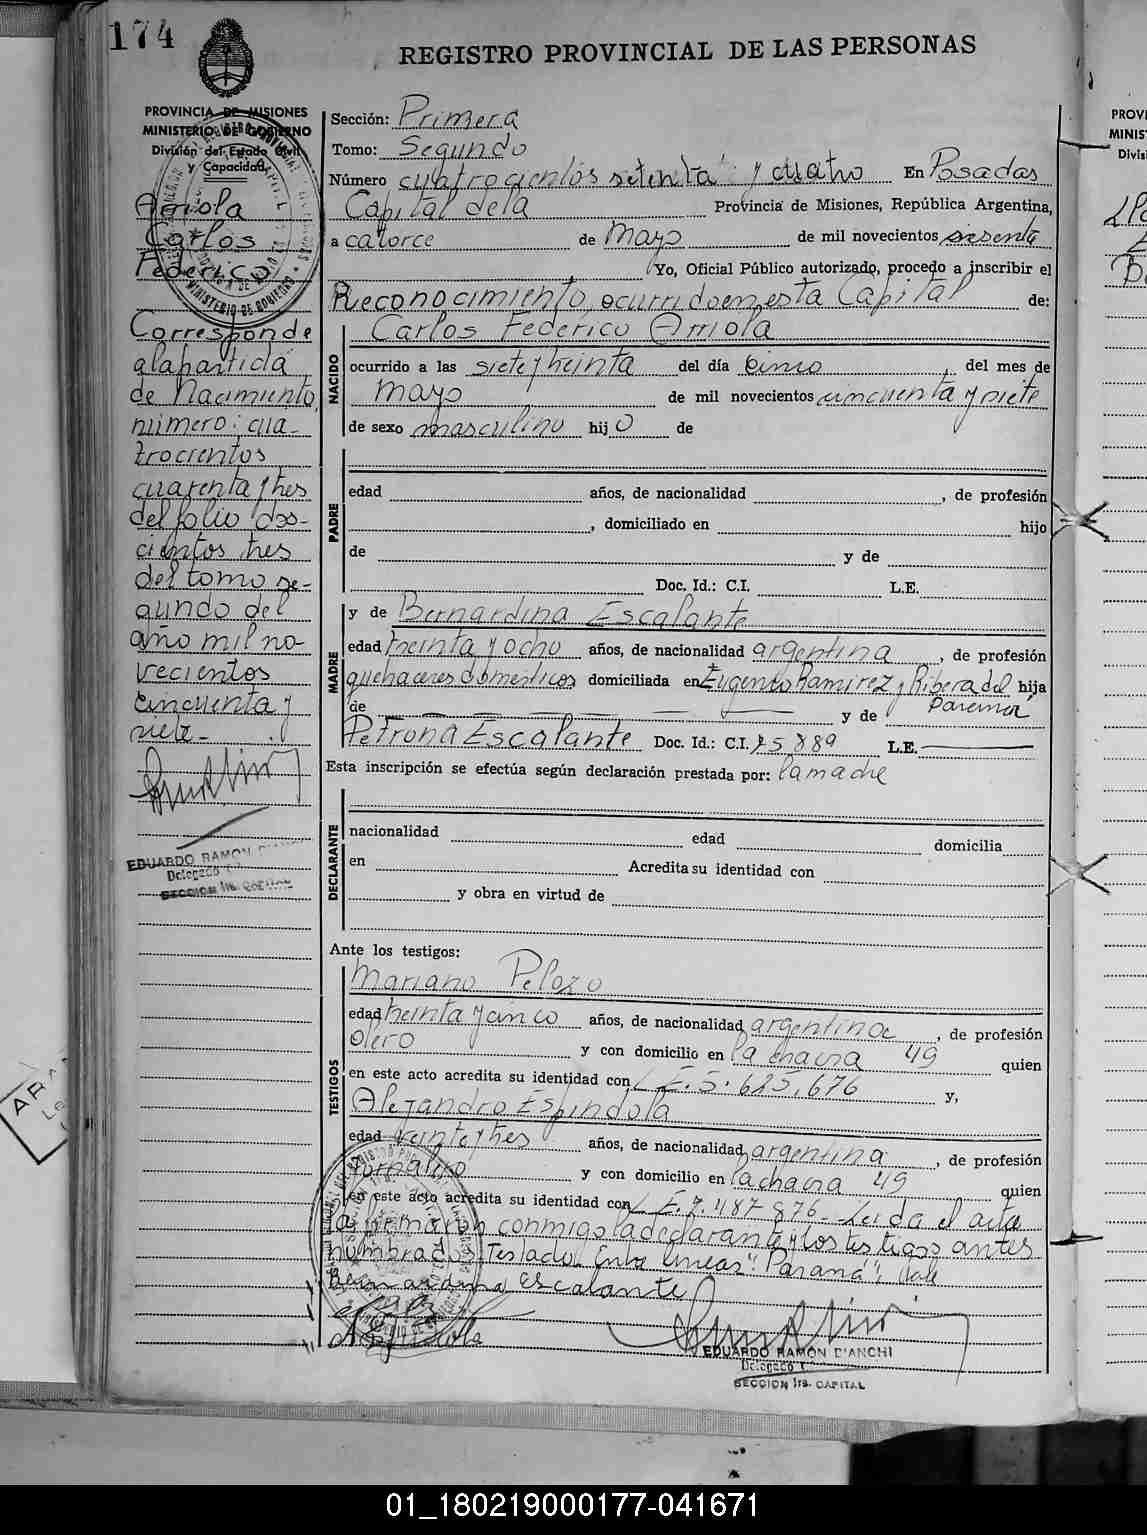 174
REGISTRO PROVINCIAL DE LAS PERSONAS
PROVINCIA DE MISIONES
MINISTERIO DE GOBIERNO
División del Estado Civil
y Capacidad
Arriola
Carlos
Federico
Corresponde
a la partida
de Nacimiento
número: cua-
trocientos
cuarenta y tres
del folio dos-
cientos tres
del tomo se-
gundo del
año mil no-
vecientos
cincuenta y
siete -
EDUARDO RAMON D'ANCHI
Delegado
SECCION 1ra. CAPITAL
Sección: Primera
Tomo: Segundo
Número cuatrocientos setenta y cuatro En Posadas
Capital de la Provincia de Misiones, República Argentina,
a catorce de Mayo de mil novecientos sesenta
Yo, Oficial Público autorizado, procedo a inscribir el
Reconocimiento, ocurrido en esta Capital de:
NACIDO
Carlos Federico Arriola
ocurrido a las siete y treinta del día cinco, del mes de
mayo de mil novecientos cincuenta y siete
de sexo masculino hijo de
PADRE
edad años, de nacionalidad , de profesión
, domiciliado en hijo
de y de
Doc. Id.: C.I. L.E.
MADRE
y de Bernardina Escalante
edad treinta y ocho años, de nacionalidad argentina, de profesión
quehaceres domésticos domiciliada en Eugenio Ramirez y Ribera del hija
Paraná
de y de
Petrona Escalante Doc. Id.: C.I. 75889 L.E.
Esta inscripción se efectúa según declaración prestada por: la madre
DECLARANTE
nacionalidad edad domicilia
en Acredita su identidad con
y obra en virtud de
Ante los testigos:
TESTIGOS
Mariano Pelozo
edad treinta y cinco años, de nacionalidad argentina, de profesión
olero y con domicilio en la chacra 49 quien
en este acto acredita su identidad con L.E. 5.625,676 y,
Alejandro Espindola
edad veinte y tres años, de nacionalidad argentina, de profesión
jornalero y con domicilio en la chacra 49 quien
en este acto acredita su identidad con L.E. 7.487.876- Leida el acta
la firmaron conmigo la declarante y los testigos antes
nombrados. Testado. Entre lineas: "Paraná"; Vale
Bernardina escalante
EDUARDO RAMON D'ANCHI
Delegado
SECCION 1ra. CAPITAL
01_180219000177-041671